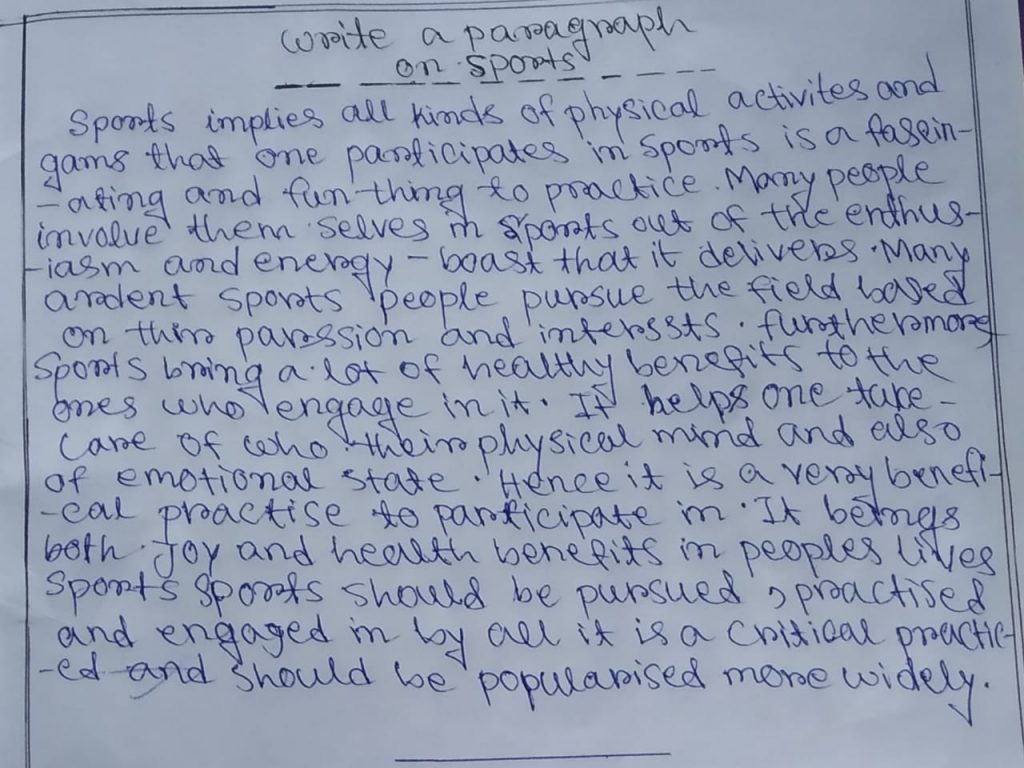 Write a paragraph
on sports
Sports implies all kinds of physical activites and
gams that one participates in sports is a fascin-
-ating and fun thing to practice. Many people
involve them selves in sports out of the enthus-
-iasm and energy - boast that it delivers. Many
ardent sports people pursue the field based
on thir parssion and interssts. furthermore
Sports bring a lot of healthy benefits to the
ones who engage in it. It helps one take-
care of who their physical mind and also
of emotional state. Hence it is a very benefi-
-cal practise to participate in. It beings
both joy and health benefits in peoples lives
Sports sports should be pursued, practised
and engaged in by all it is a critical practic-
-ed and should be popularised more widely.